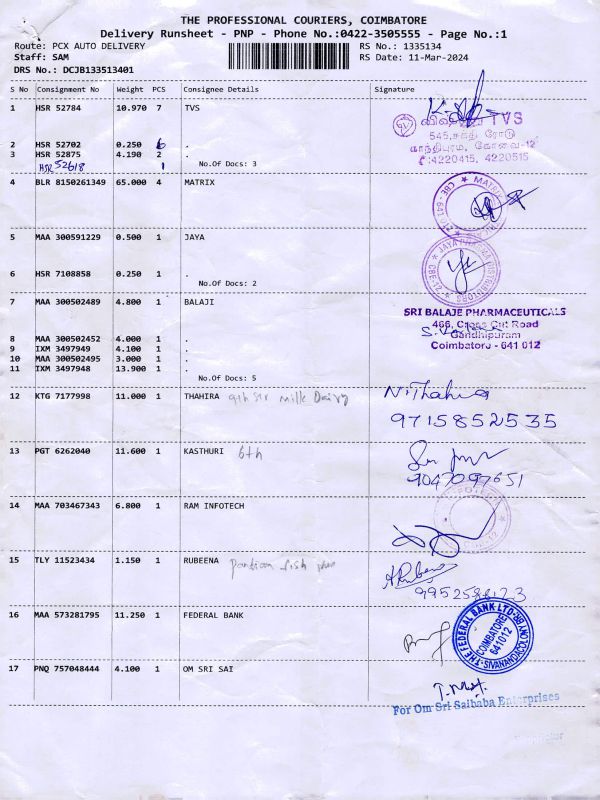 THE PROFESSIONAL COURIERS, COIMBATORE
Delivery Runsheet - PNP - Phone No.:0422-3505555 - Page No.:1
Route: PCX AUTO DELIVERY RS No.: 1335134
Staff: SAM RS Date: 11-Mar-2024
DRS No.: DCJB133513401
S No Consignment No Weight PCS Consignee Details Signature
1 HSR 52784 10.970 7 TVS
TVS
545,சக்தி ரோடு
காந்திபுரம், கோவை-12
:4220415, 4220515
2 HSR 52702 0.250 6 .
3 HSR 52875 4.190 2 .
HSR 52618 1 No.Of Docs: 3
4 BLR 8150261349 65.000 4 MATRIX
MATRIX
CBE - 641
5 MAA 300591229 0.500 1 JAYA
JAYA
6 HSR 7108858 0.250 1 .
No.Of Docs: 2
7 MAA 300502489 4.800 1 BALAJI
SRI BALAJE PHARMACEUTICALS
466, Cross Cut Road
Gandhipuram
Coimbatore - 641 012
8 MAA 300502452 4.000 1 .
9 IXM 3497949 4.100 1 .
10 MAA 300502495 3.000 1 .
11 IXM 3497948 13.900 1 .
No.Of Docs: 5
12 KTG 7177998 11.000 1 THAHIRA 9th Str Milk Dairy N.Thahira
9715852535
13 PGT 6262040 11.600 1 KASTHURI 6th
9047097651
14 MAA 703467343 6.800 1 RAM INFOTECH
15 TLY 11523434 1.150 1 RUBEENA fish A.Rubeena
16 MAA 573281795 11.250 1 FEDERAL BANK
THE FEDERAL BANK LTD
COIMBATORE
641012
SIVANANDACOLONY BR
17 PNQ 757048444 4.100 1 OM SRI SAI
For Om Sri Saibaba Enterprises
Proprietor